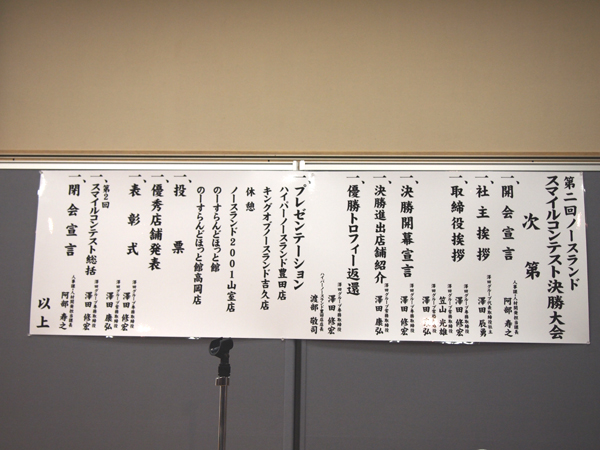 第二回ノースランド
スマイルコンテスト決勝大会
次第
一、開会宣言
阿部 寿之
一、社主挨拶
澤田 辰勇
一、取締役挨拶
澤田 修宏
笠山 光雄
澤田 康弘
一、決勝開幕宣言
澤田 修宏
一、決勝進出店舗紹介
澤田 康弘
一、優勝トロフィー返還
澤田 修宏
渡部 敬司
一、プレゼンテーション
ハイパーノースランド豊田店
キングオブノースランド吉久店
休憩
ノースランド2001山室店
のーすらんどほっと館
のーすらんどほっと館高岡店
一、投票
一、優秀店舗発表
一、表彰式
澤田 修宏
澤田 康弘
一、第2回
スマイルコンテスト総括
澤田 修宏
一、閉会宣言
阿部 寿之
以上